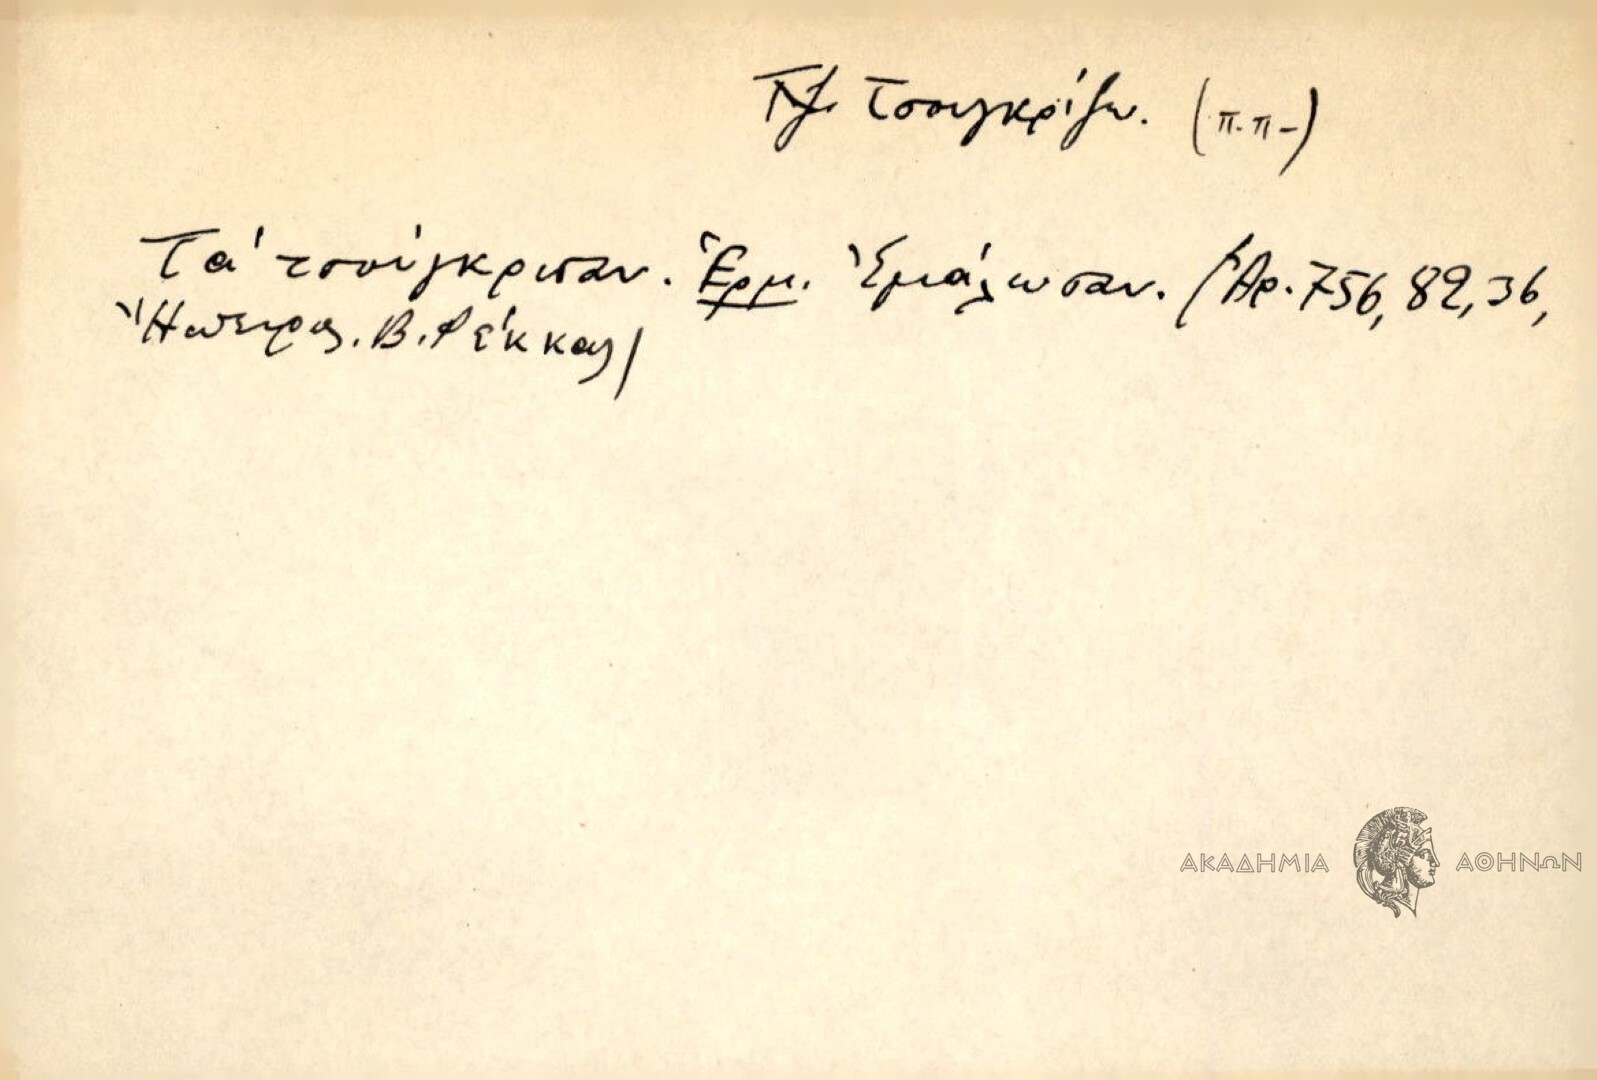 τσουγκρίζω. (π.π-)
Τά τσούγκρισαν. Ἑρμ. Ἐμάλωσαν. (Ἀρ. 756, 82, 36,
Ἤπειρος. Β. Ρέκκας)
ΑΚΑΔΗΜΙΑ ΑΘΗΝΩΝ